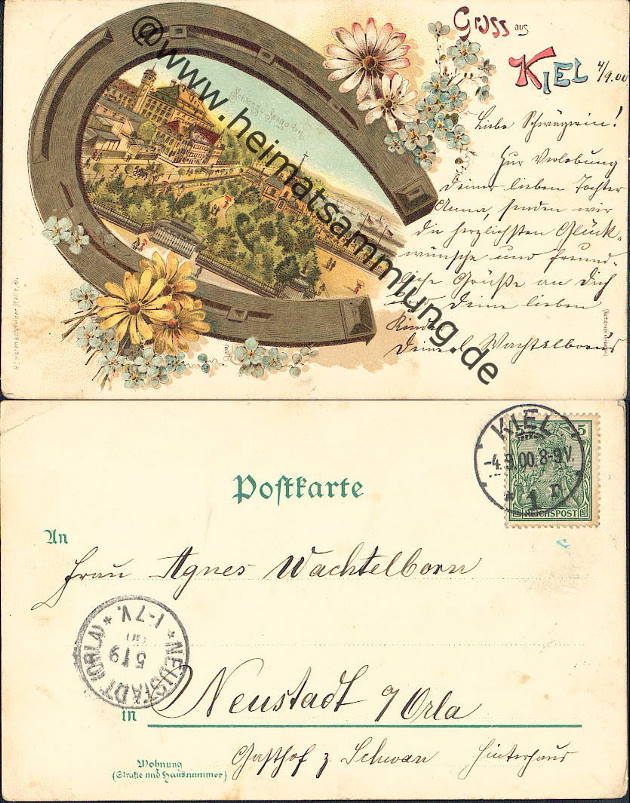 Gruss aus
KIEL
4/9.00
Liebe Schwägerin!
Zur Verlobung
Deiner lieben Tochter
Anna, senden wir
die herzlichsten Glück-
wünsche und freund-
liche Grüße an Dich
Deine lieben
@www.heimatsammlung.de
Postkarte
KIEL
-4.9.00.8-9V.
* 1 n
5
REICHSPOST
An
Frau Agnes Wachtelborn
* NEUSTADT (ORLA) *
5 9
1-7V.
in
Neustadt a/Orla
Gasthof z Schwan Hinterhaus
Wohnung
(Straße und Hausnummer)